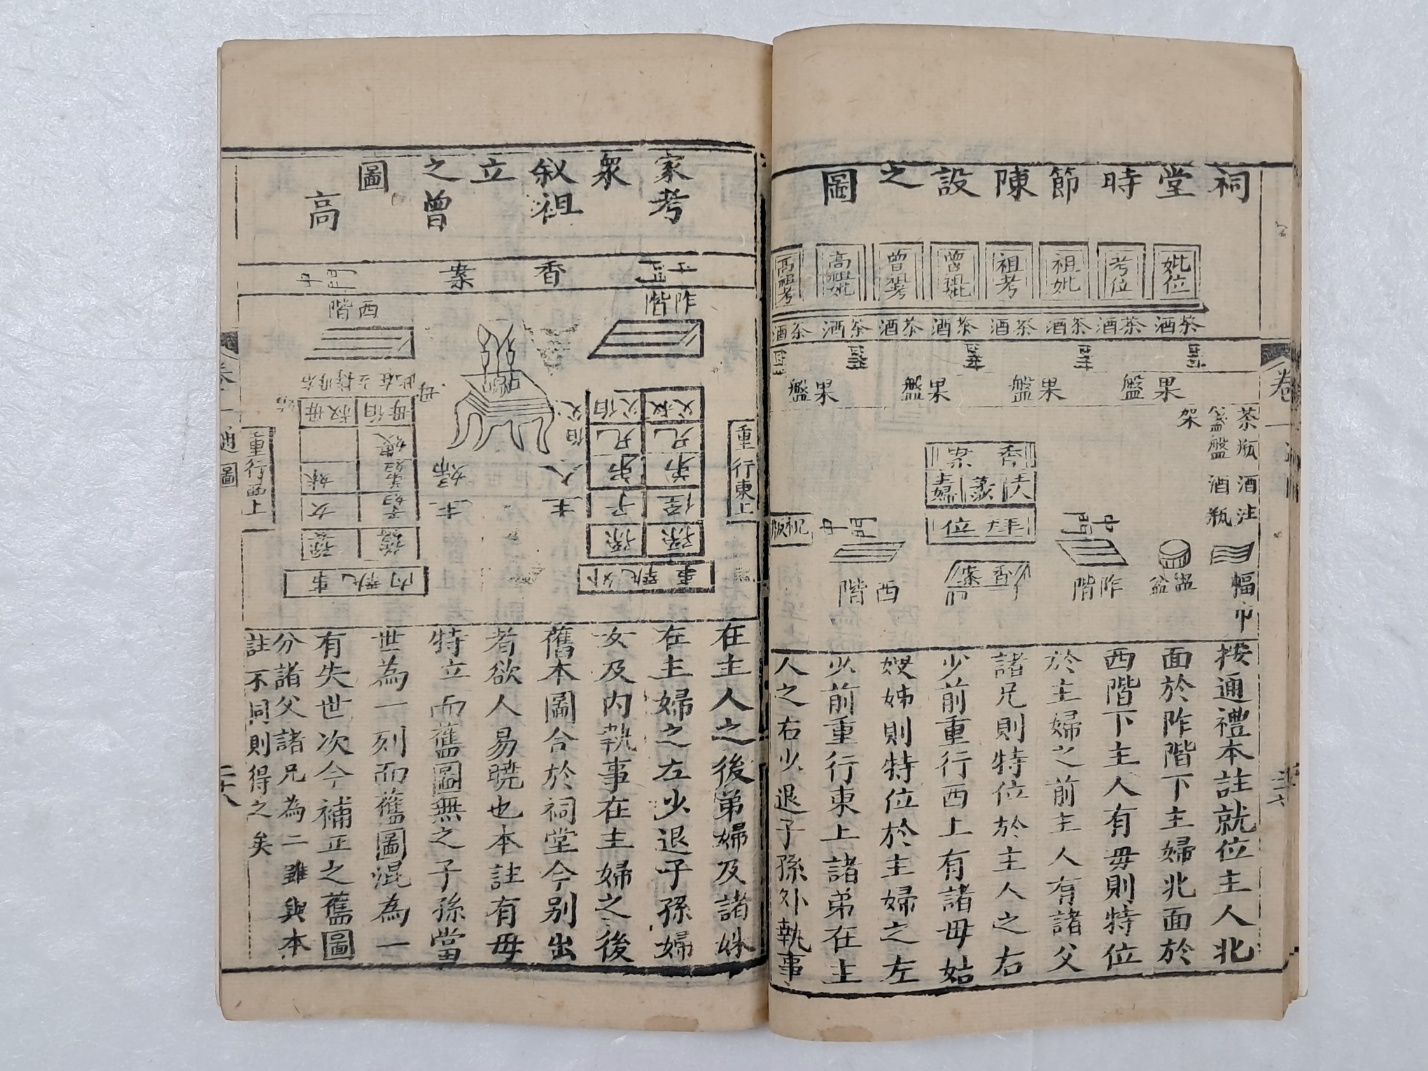 祠堂時節陳設之圖
妣位
考位
祖妣
祖考
曾祖妣
曾祖考
高祖妣
高祖考
茶酒
茶酒
茶酒
茶酒
茶酒
茶酒
茶酒
茶酒
果盤
果盤
果盤
果盤
茶瓶酒注
盞盤酒瓶
架
香案
拜位
祝版
香案
阼階
西階
盥盆
帨巾
按通禮本註就位主人北
面於阼階下主婦北面於
西階下主人有毋則特位
於主婦之前主人有諸父
諸兄則特位於主人之右
少前重行西上有諸毋姑
嫂姊則特位於主婦之左
少前重行東上諸弟在主
人之右少退子孫外執事
卷一
家衆叙立之圖
考
祖
曾
高
香案
阼階
西階
主人
主婦
叔父
伯父
兄
兄
弟
弟
侄
子
孫
孫
外執事
重行東上
伯母
叔母
嫂
妹
女
內執事
重行西上
在主人之後弟婦及諸妹
在主婦之左少退子孫婦
女及内執事在主婦之後
舊本圖合於祠堂今别出
者欲人易曉也本註有毋
特立而舊圖無之子孫當
世為一列而舊圖混為一
有失世次今補正之舊圖
分諸父諸兄為二雖與本
註不同則得之矣
卷一
通圖
二十八